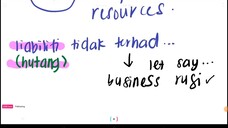 resources.
liabiliti tidak terhad...
(hutang) ↓ let say...
business rugi ✓